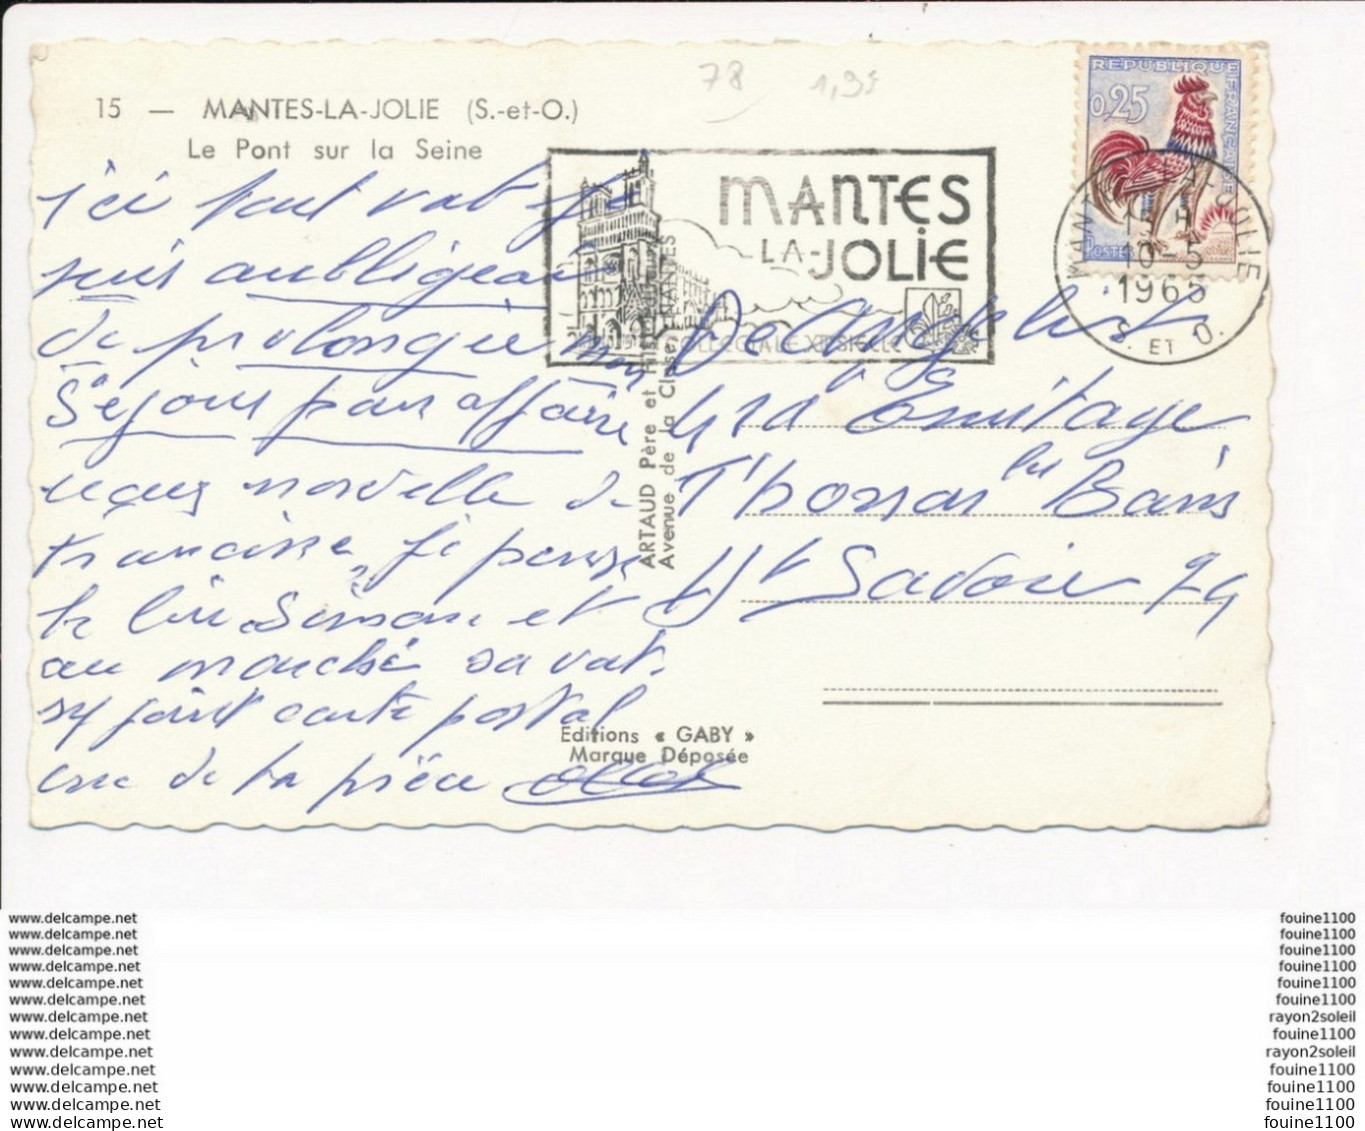 78 1,95
15 — MANTES-LA-JOLIE (S.-et-O.)
Le Pont sur la Seine
RÉPUBLIQUE FRANÇAISE
0,25
POSTES
MANTES
LA-JOLIE
COLLEGIALE XII SIECLE
MANTES-LA-JOLIE
15 H
10-5
1965
S. ET O.
ici tout vat je
suis aubligean
de prolongée mon
Séjour par affaire
nouvelle de
francisse, je pense
te lire Simone et
au marché sa vat
si joint carte postal
de la
ARTAUD Père et Fils, Editeurs
Avenue de la Close, NANTES
Ermitage
Thonon les Bains
Ht Savoie 74
Editions « GABY »
Marque Déposée
www.delcampe.net
www.delcampe.net
www.delcampe.net
www.delcampe.net
www.delcampe.net
www.delcampe.net
www.delcampe.net
www.delcampe.net
www.delcampe.net
www.delcampe.net
www.delcampe.net
www.delcampe.net
www.delcampe.net
fouine1100
fouine1100
fouine1100
fouine1100
fouine1100
fouine1100
rayon2soleil
fouine1100
rayon2soleil
fouine1100
fouine1100
fouine1100
fouine1100